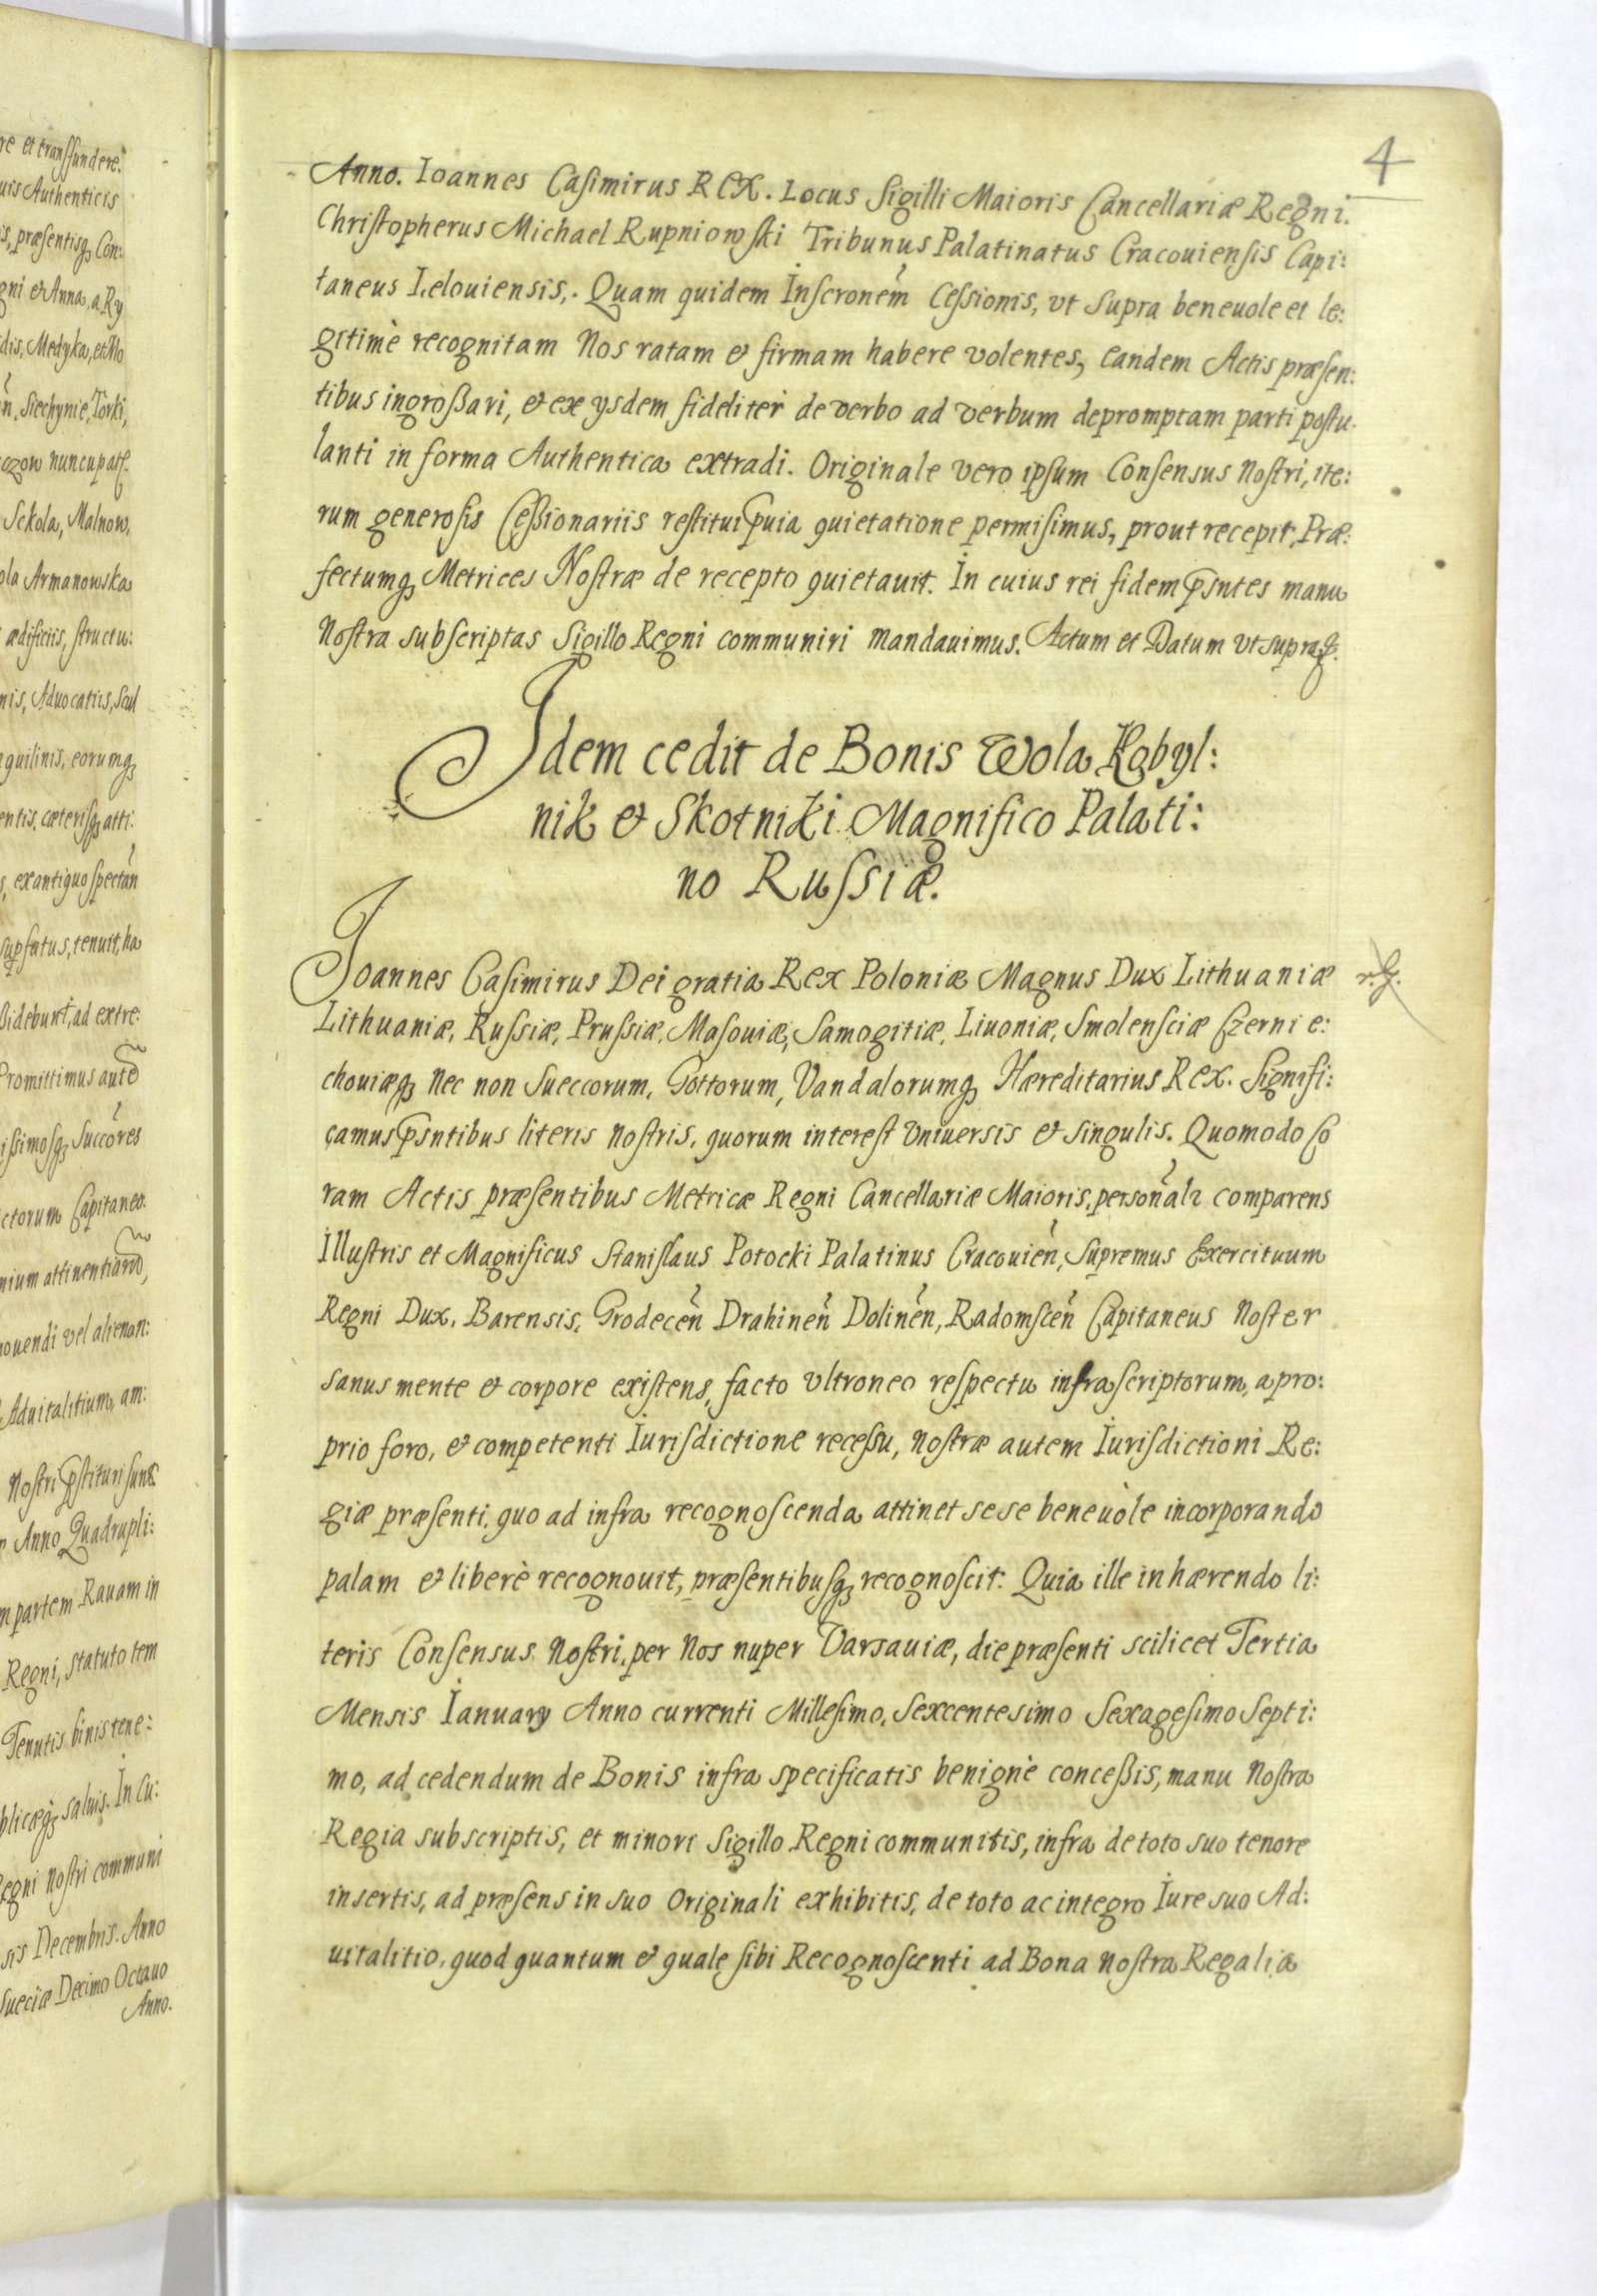 re et transfundere.
uis Authenticis
s, præsentisq₃ Con:
gni et Anna, a Ry
dis, Medyka, et Mo
n, Siechynie, Torki,
czow nuncupat.
Sckola, Malnow,
ola Armanowska
ædificiis, structu:
nis, Aduocatiis, Scul
quilinis, eorumq₃
entis, cæterisq₃ atti:
s, ex antiquo spectan̄
fatus, tenuit, ha
ßidebunt, ad extre:
Promittimus aute
issimosq₃ Succores
ctorum Capitaneo.
nium attinentiarū,
ouendi vel alienan:
Aduitalitium, am:
Nostri pstituri sunt
r Anno Quadrupli:
m partem Rauam in
Regni, statuto tem
Tenutis binis tene:
blicæq₃ saluis. In Cu:
Regni nostri communi
sis Decembris. Anno
Sueciæ Decimo Octauo
Anno.
4
Anno. Ioannes Casimirus REX. Locus Sigilli Maioris Cancellariæ Regni.
Christopherus Michael Rupniowski Tribunus Palatinatus Cracouiensis Capi:
taneus Lelouiensis,. Quam quidem Inscronem̄ Cessionis, vt supra beneuole et le:
gitimè recognitam Nos ratam & firmam habere volentes, eandem Actis præsen:
tibus ingroßari, & ex ysdem fideliter de verbo ad verbum depromptam parti postu.
lanti in forma Authentica extradi. Originale vero ipsum Consensus Nostri, ite:
rum generosis Ceßionariis restitui puia quietatione permisimus, prout recepit, Præ:
fectumq₃ Metrices Nostræ de recepto quietauit. In cuius rei fidem psntes manu
Nostra subscriptas Sigillo Regni communiri mandauimus. Actum et Datum vt supra.
Idem cedit de Bonis Wola Kobyl:
nik & Skotniki Magnifico Palati:
no Russiæ.
Ioannes Casimirus Dei gratia Rex Poloniæ Magnus Dux Lithuaniæ
Lithuaniæ, Russiæ, Prussiæ, Masouiæ, Samogitiæ, Liuoniæ, Smolensciæ Czernie:
chouiæq₃ nec non Sueccorum, Gottorum, Vandalorumq₃ Hæreditarius Rex. Signifi:
camus psntibus literis nostris, quorum interest Vniuersis & singulis. Quomodo Co
ram Actis præsentibus Metricæ Regni Cancellariæ Maioris, personalr comparens
Illustris et Magnificus Stanislaus Potocki Palatinus Cracouien̄, Supremus Exercituum
Regni Dux, Barensis, Grodecen̄ Drahinen̄ Dolinen̄, Radomscen̄ Capitaneus Noster
sanus mente & corpore existens, facto vltroneo respectu infrascriptorum, a pro:
prio foro, & competenti Iurisdictione recessu, nostræ autem Iurisdictioni Re:
giæ præsenti, quo ad infra recognoscenda attinet sese beneuòle incorporando
palam & liberè recognouit, præsentibusq₃ recognoscit. Quia ille inhærendo li:
teris Consensus Nostri, per Nos nuper Varsauiæ, die præsenti scilicet Tertia
Mensis Ianuary Anno currenti Millesimo, Sexcentesimo Sexagesimo Septi:
mo, ad cedendum de Bonis infra specificatis benignè conceßis, manu Nostra
Regia subscriptis, et minori Sigillo Regni communitis, infra de toto suo tenore
insertis, ad præsens in suo Originali exhibitis, de toto ac integro Iure suo Ad:
uitalitio, quod quantum & quale sibi Recognoscenti ad Bona nostra Regalia